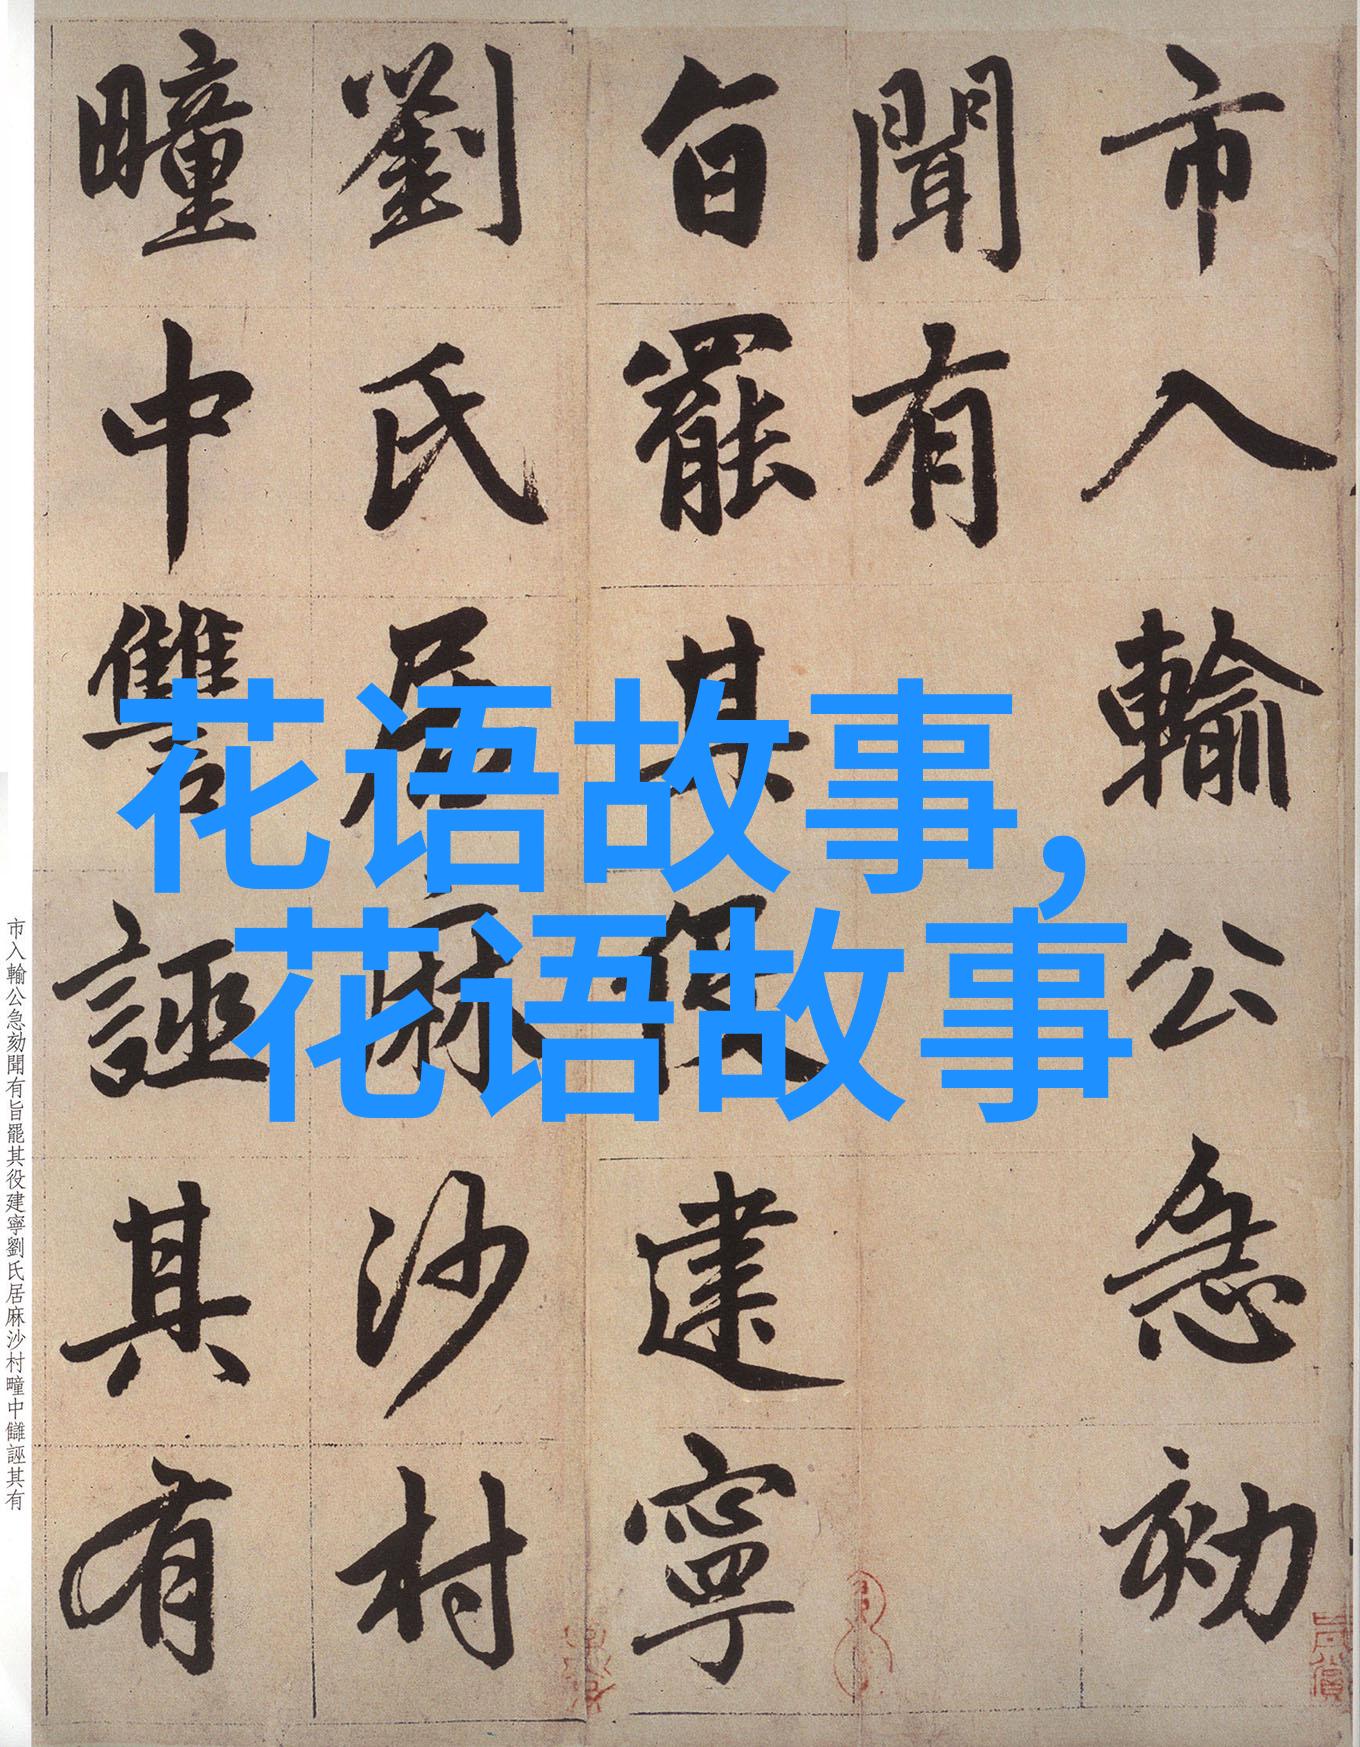 市入輸公急劾
聞有
旨罷其役建寧
劉氏居麻沙村
疃中讐誣其有
花语故事,
花语故事
市入輸公急劾聞有旨罷其役建寧劉氏居麻沙村疃中讎誣其有